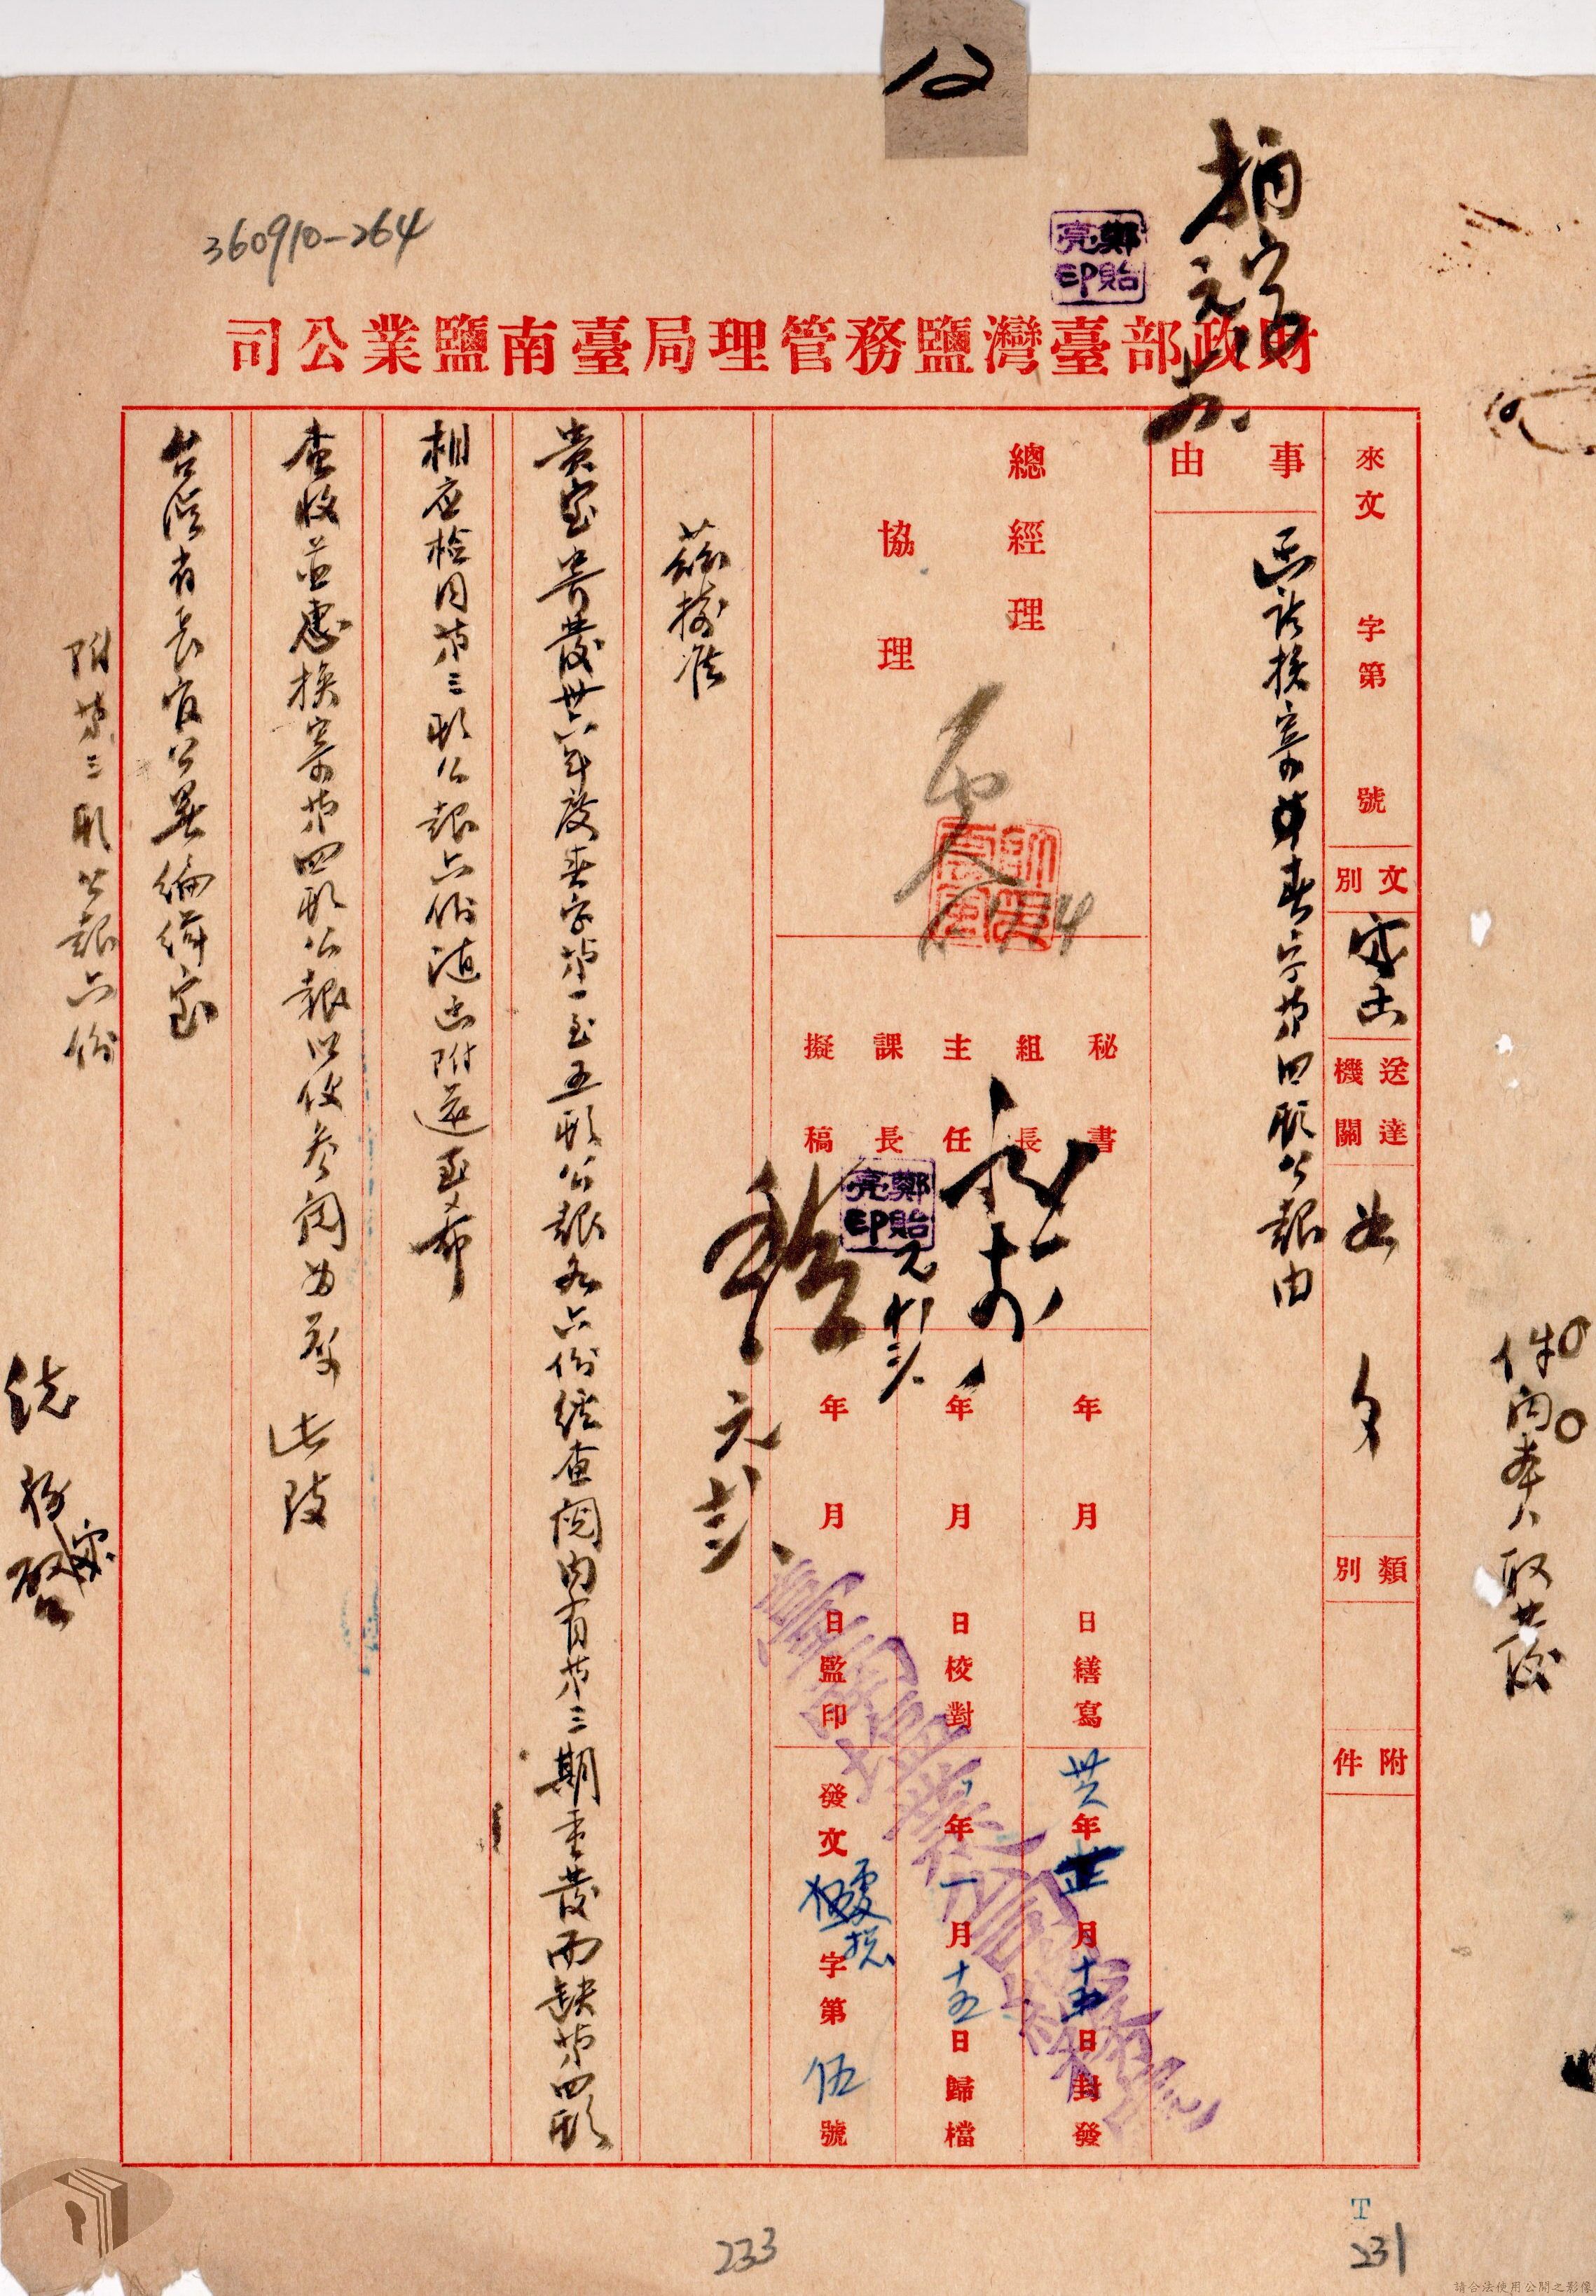 12
360910-264
鄭貽亮印
財政部臺灣鹽務管理局臺南鹽業公司
來文 字第 號
文別
送達機關
類別
附件
事由
函請換寄春字第四期公報由
總經理
協理
秘書
組長
主任
課長
擬稿
鄭貽亮印
年 月 日繕寫
年 月 日校對
年 月 日監印
卅六年 月十五日封發
年一月十五日歸檔
發文 字第伍號
茲接准
貴室寄發卅六年度春字第一至五期公報各六份經查閱內有第三期重發而缺第四期
相应檢同第三期公報六份随函附還至希
查收並惠換寄第四期公報以便參閱为荷 此致
台灣省長官公署編輯室
附第三期公報六份
啓
件內本人取發
233
T
231
請合法使用公開之影像